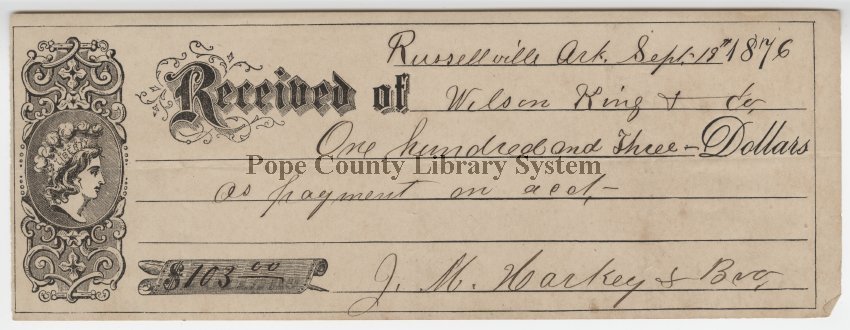 Russellville Ark. Sept. 13th 1876
Received of Wilson King & Co,
One hundred and Three – Dollars
Pope County Library System
as payment on acct,–
$103 00
J. M. Harkey & Bro,